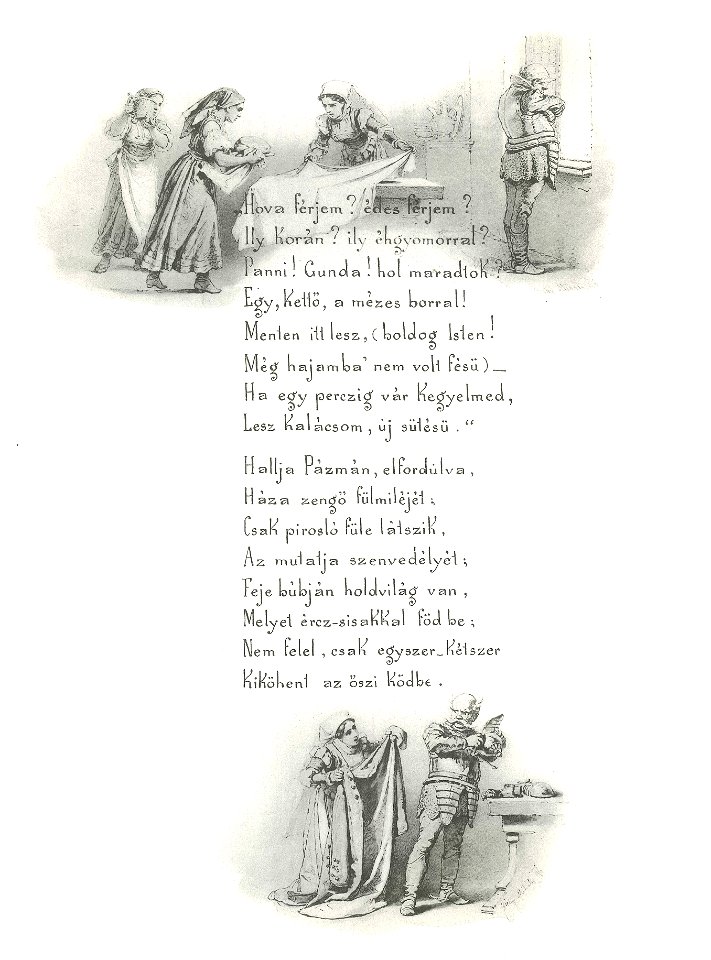 „Hova férjem? édes férjem?
Ily korán? ily éhgyomorral?
Panni! Gunda! hol maradtok?
Egy, kettő, a mézes borral!
Menten itt lesz, (boldog Isten!
Még hajamba' nem volt fésü)_
Ha egy perczig vár kegyelmed,
Lesz kalácsom, új sütésü."
Hallja Pázmán, elfordúlva,
Háza zengő fülmiléjét;
Csak pirosló füle látszik,
Az mutatja szenvedélyét;
Feje búbján holdvilág van,
Melyet ércz-sisakkal föd be;
Nem felel, csak egyszer-kétszer
Kiköhent az őszi ködbe.